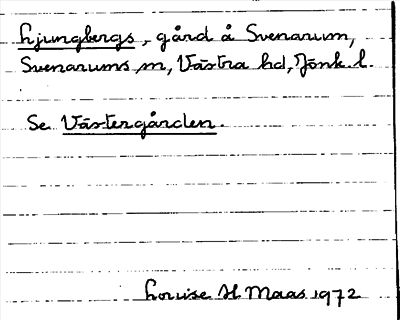 Ljungbergs, gård å Svenarum,
Svenarums sn, Västra hd, Jönk l.
Se Västergården.
Louise H Maas 1972